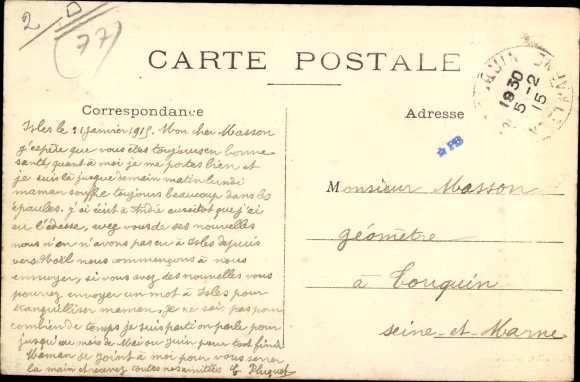 2 D
(77)
CARTE POSTALE
Correspondance
Adresse
TOUQUIN
19 30
5 -2
15
PB
Isles le 31 janvier 1915. Mon cher Masson
j'espère que vous êtes toujours en bonne
santé quant à moi je me portes bien et
je suis là jusque demain matin lundi
maman souffre toujours beaucoup dans les
épaules. j'ai écrit à André aussitot que j'ai
eu l'adresse, avez vous de ses nouvelles
nous n'en n'avons pas eu à Isles depuis
vers Noël nous commençons à nous
ennuyer, si vous avez des nouvelles vous
pourrez envoyer un mot à Isles pour
tranquilliser maman, je ne sais pas pour
combien de temps je suis parti on parle pour
jusqu'au mois de Mai ou Juin pour tout finir
Maman se joint à moi pour vous serrer
la main et recevez toutes nos amitiés E. Pluquet
Monsieur Masson
géomètre
à Touquin
Seine-et-Marne